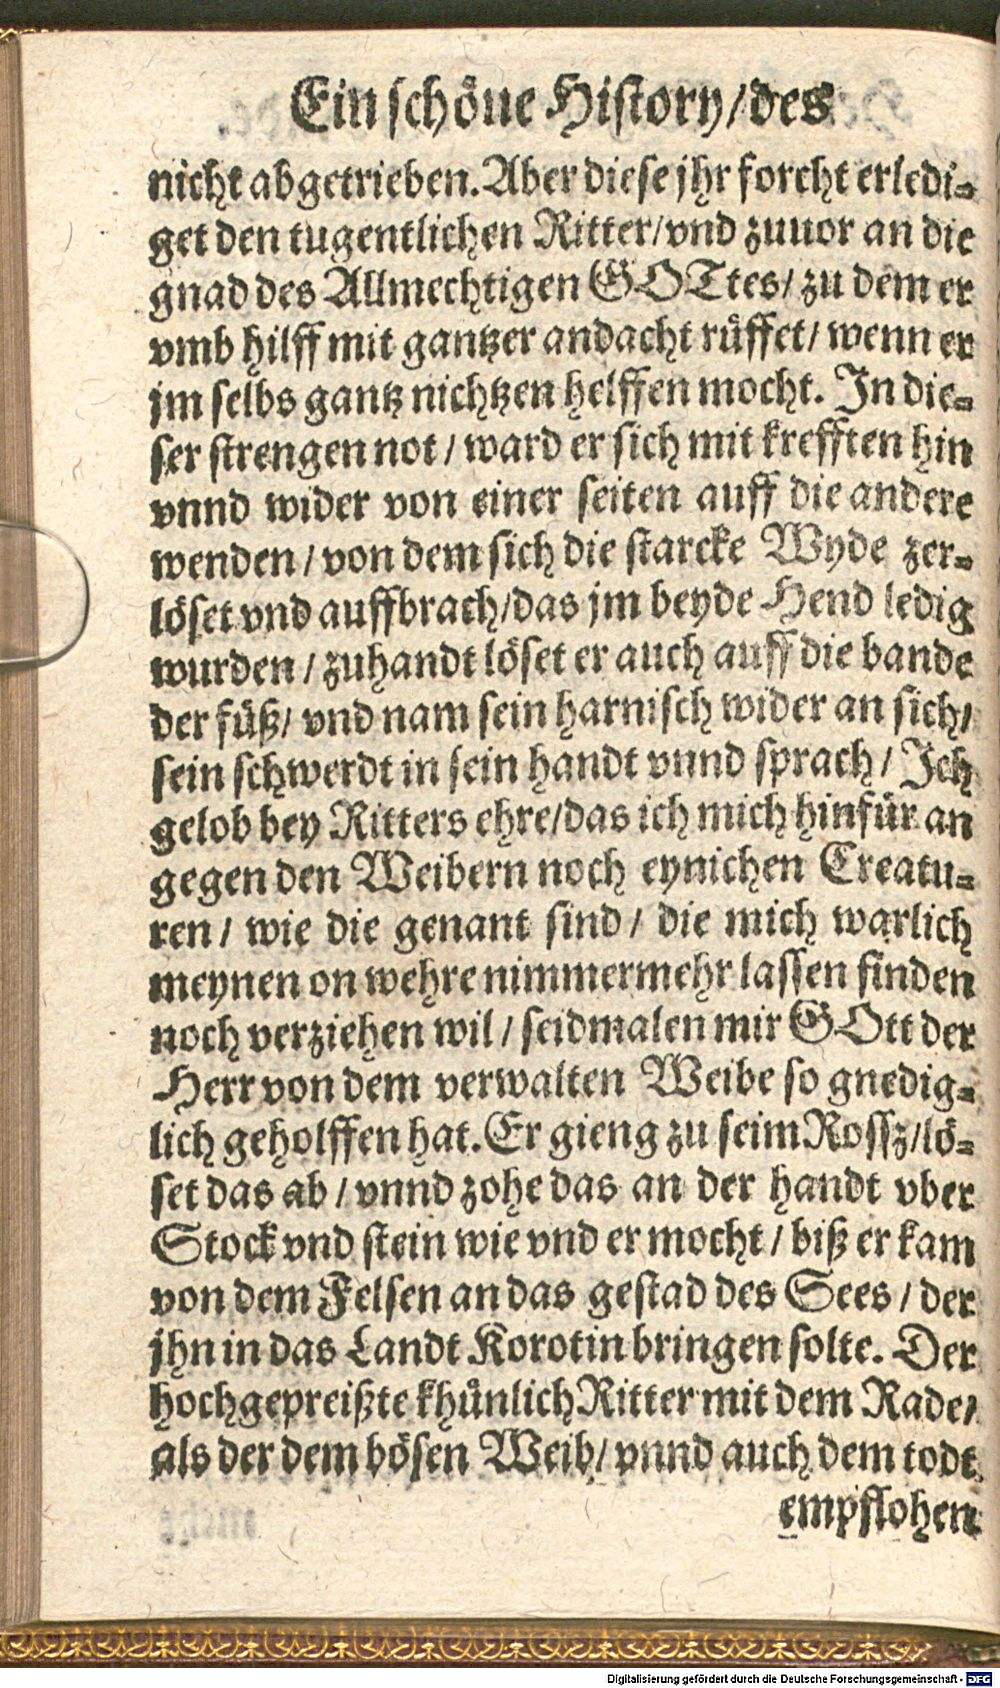 Ein schöne History/des
nicht abgetrieben. Aber diese jhr forcht erledi⸗
get den tugentlichen Ritter/vnd zuuor an die
gnad des Allmechtigen GOTtes/ zu dem er
vmb hilff mit gantzer andacht rüffet/ wenn er
jm selbs gantz nichtzen helffen mocht. In die⸗
ser strengen not / ward er sich mit krefften hin
vnnd wider von einer seiten auff die andere
wenden / von dem sich die starcke Wyde zer⸗
löset vnd auffbrach/das jm beyde Hend ledig
wurden / zuhandt löset er auch auff die bande
der füß/ vnd nam sein harnisch wider an sich/
sein schwerdt in sein handt vnnd sprach / Ich
gelob bey Ritters ehre/das ich mich hinfür an
gegen den Weibern noch eynichen Creatu⸗
ren / wie die genant sind / die mich warlich
meynen on wehre nimmermehr lassen finden
noch verziehen wil / seidmalen mir GOtt der
Herr von dem verwalten Weibe so gnedig⸗
lich geholffen hat. Er gieng zu seim Rossz/lö⸗
set das ab / vnnd zohe das an der handt vber
Stock vnd stein wie vnd er mocht / biß er kam
von dem Felsen an das gestad des Sees / der
jhn in das Landt Korotin bringen solte. Der
hochgepreißte khünlich Ritter mit dem Rade/
als der dem bösen Weib/ vnnd auch dem todt
empflohen
Digitalisierung gefördert durch die Deutsche Forschungsgemeinschaft - DFG